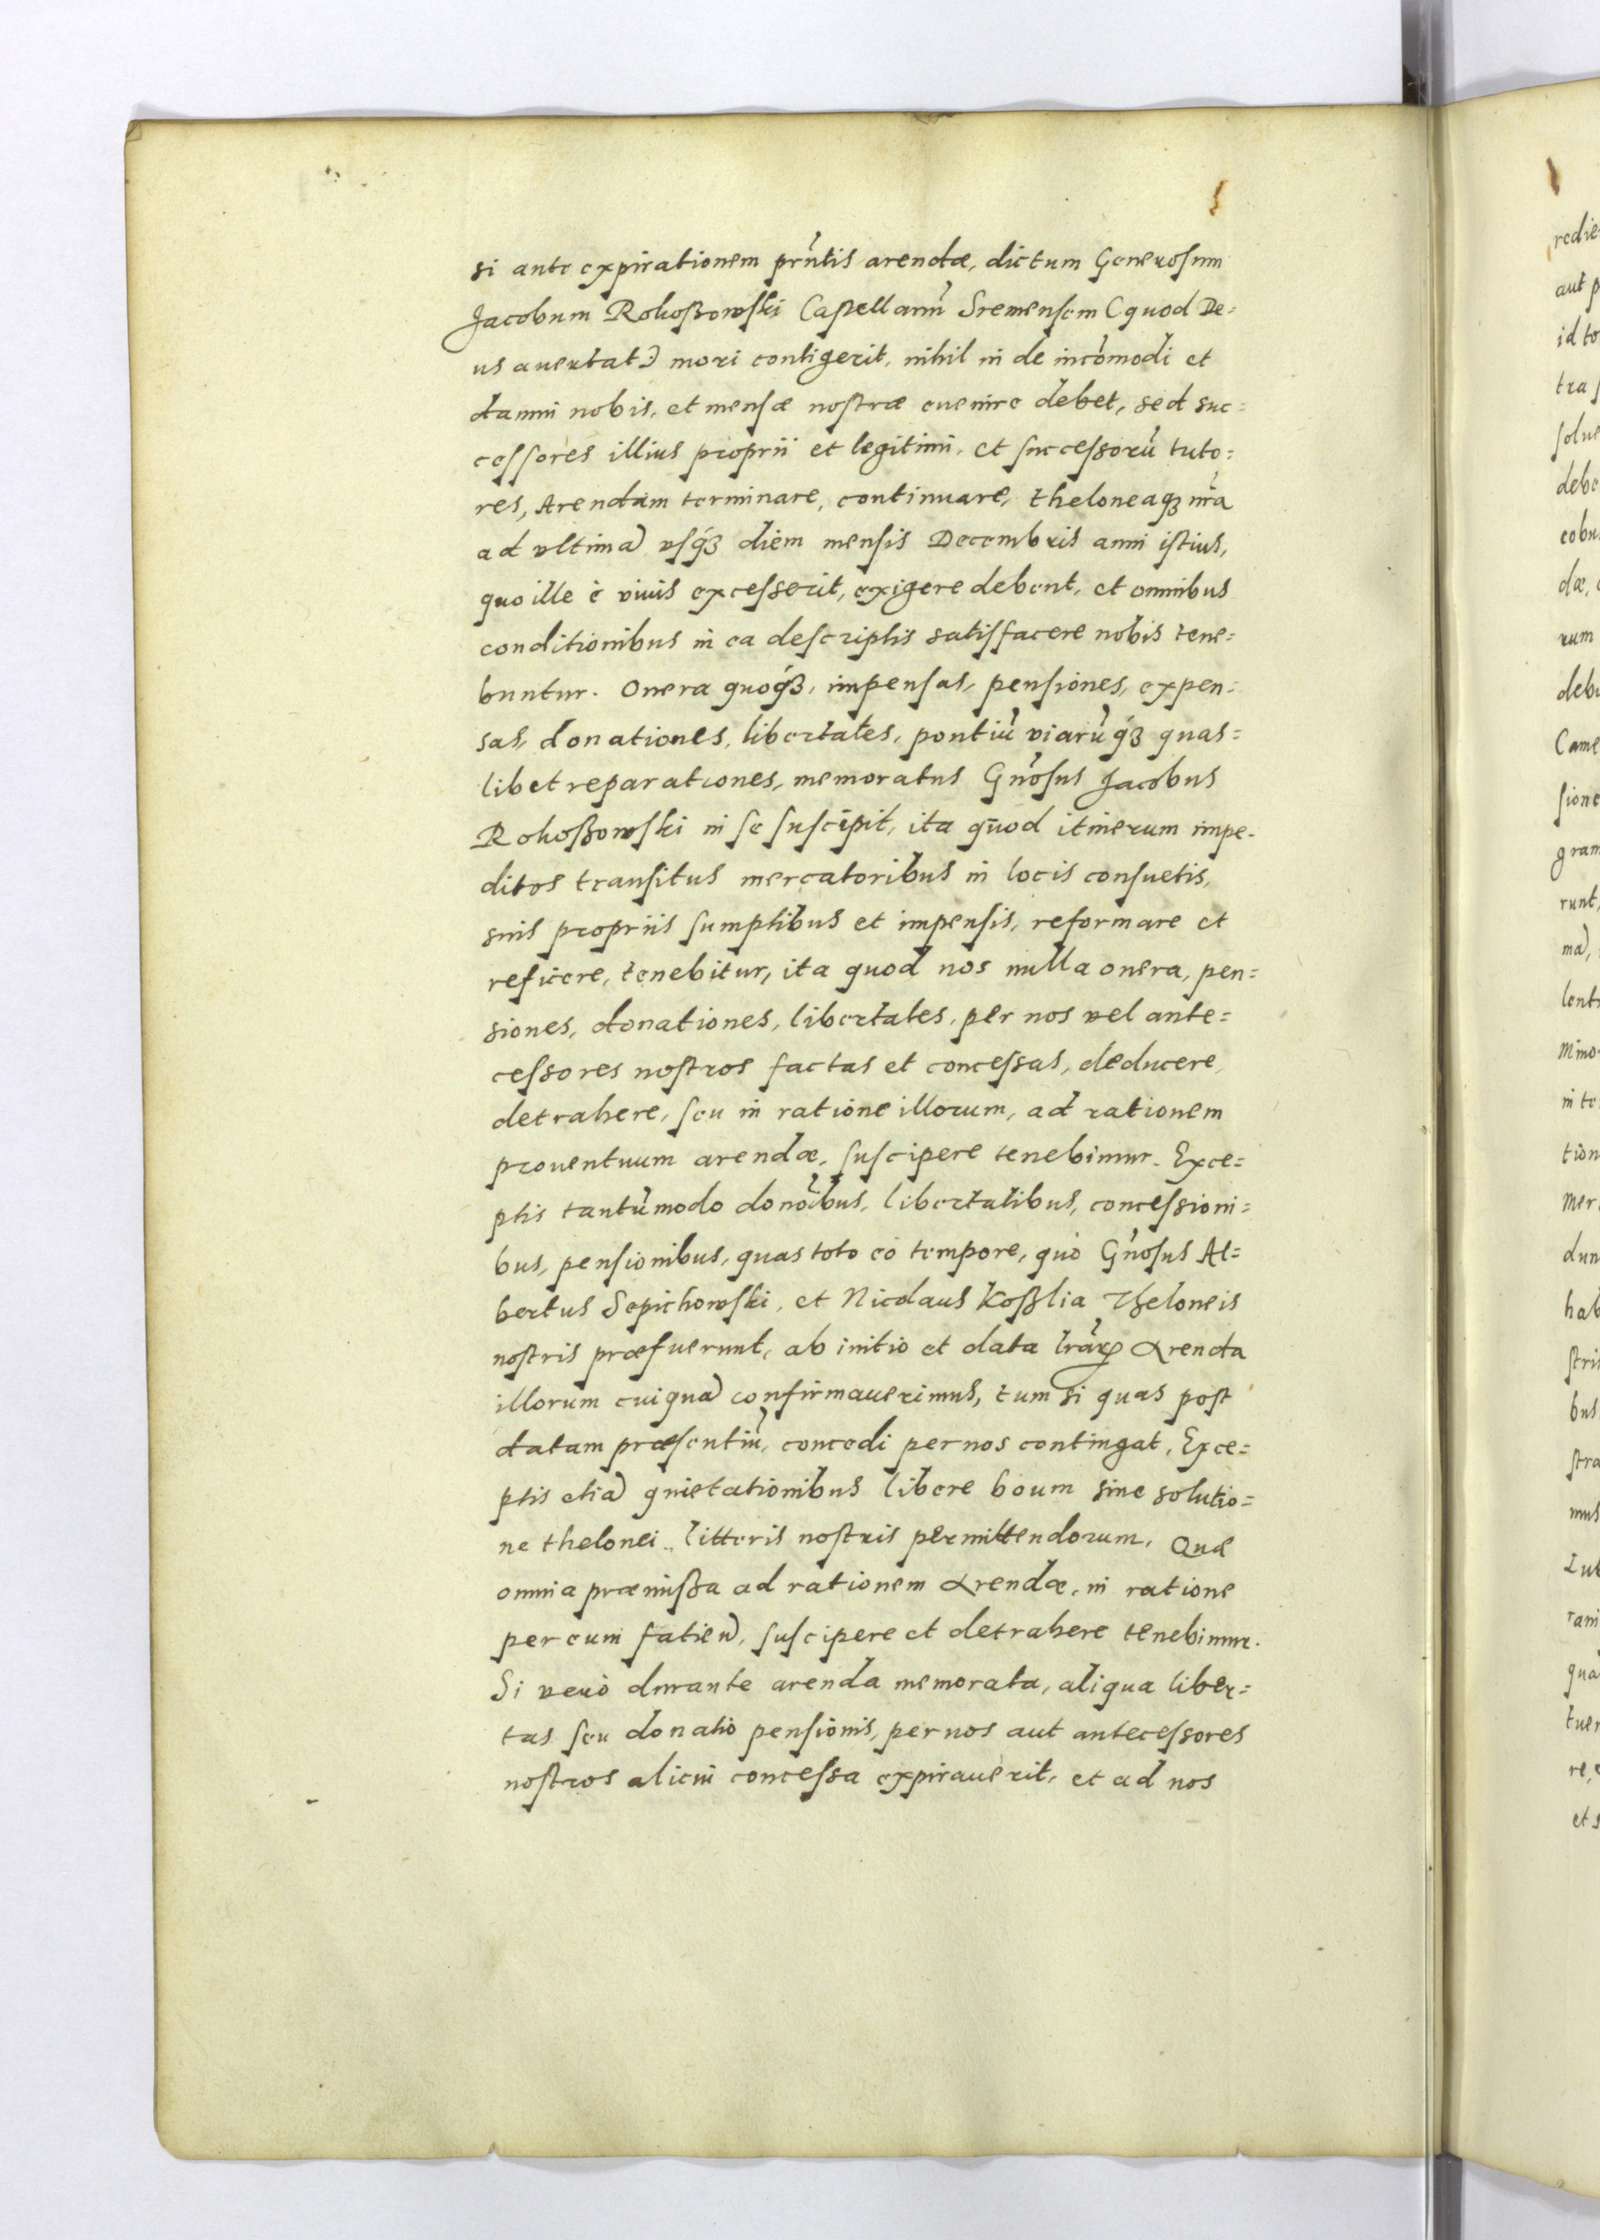 si ante expirationem prñtis arendæ, dictum Generosum
Jacobum Rokoßowski Castellanũ Sremensem (quod De=
us auertat) mori contigerit, nihil in de incõmodi et
damni nobis, et mensæ nostræ euenire debet, sed suc=
cessores illius proprii et legitimi, et successorũ tuto=
res, Arendam terminare, continuare, theloneaqȝ nr̃a
ad vltimã vsqȝ diem mensis Decembris anni istius,
quo ille è viuis excesserit, exigere debent, et omnibus
conditionibus in ea descriptis satisfacere nobis tene=
buntur. Onera quoqȝ, impensas, pensiones, expen=
sas, donationes, libertates, pontiũ viarũqȝ quas=
libet reparationes, memoratus Gñosus Jacobus
Rokoßowski in se suscipit, ita quod itinerum impe-
ditos transitus mercatoribus in locis consuetis,
suis propriis sumptibus et impensis, reformare et
reficere, tenebitur, ita quod nos nulla onera, pen=
siones, donationes, libertates, per nos vel ante=
cessores nostros factas et concessas, deducere,
detrahere, seu in ratione illorum, ad rationem
prouentuum arendæ, suscipere tenebimur. Exce=
ptis tantũmodo donõibus, libertatibus, concessioni=
bus, pensionibus, quas toto eo tempore, quò Gñosus Al=
bertus Sepichowski, et Nicolaus Koßlia Theloneis
nostris præfuerunt, ab initio et data lrãrꝝ Arenda
illorum cuiquã confirmauerimus, tum si quas post
datam præsentiũ, concedi per nos contingat, Exce=
ptis etiã quietationibus libere boum sine solutio=
ne thelonei, litteris nostris permittendorum. Quæ
omnia præmissa ad rationem Arendæ, in ratione
per eum fatieñ, suscipere et detrahere tenebimur.
Si verò durante arenda memorata, aliqua liber=
tas seu donatio pensionis, per nos aut antecessores
nostros alicui concessa expirauerit, et ad nos